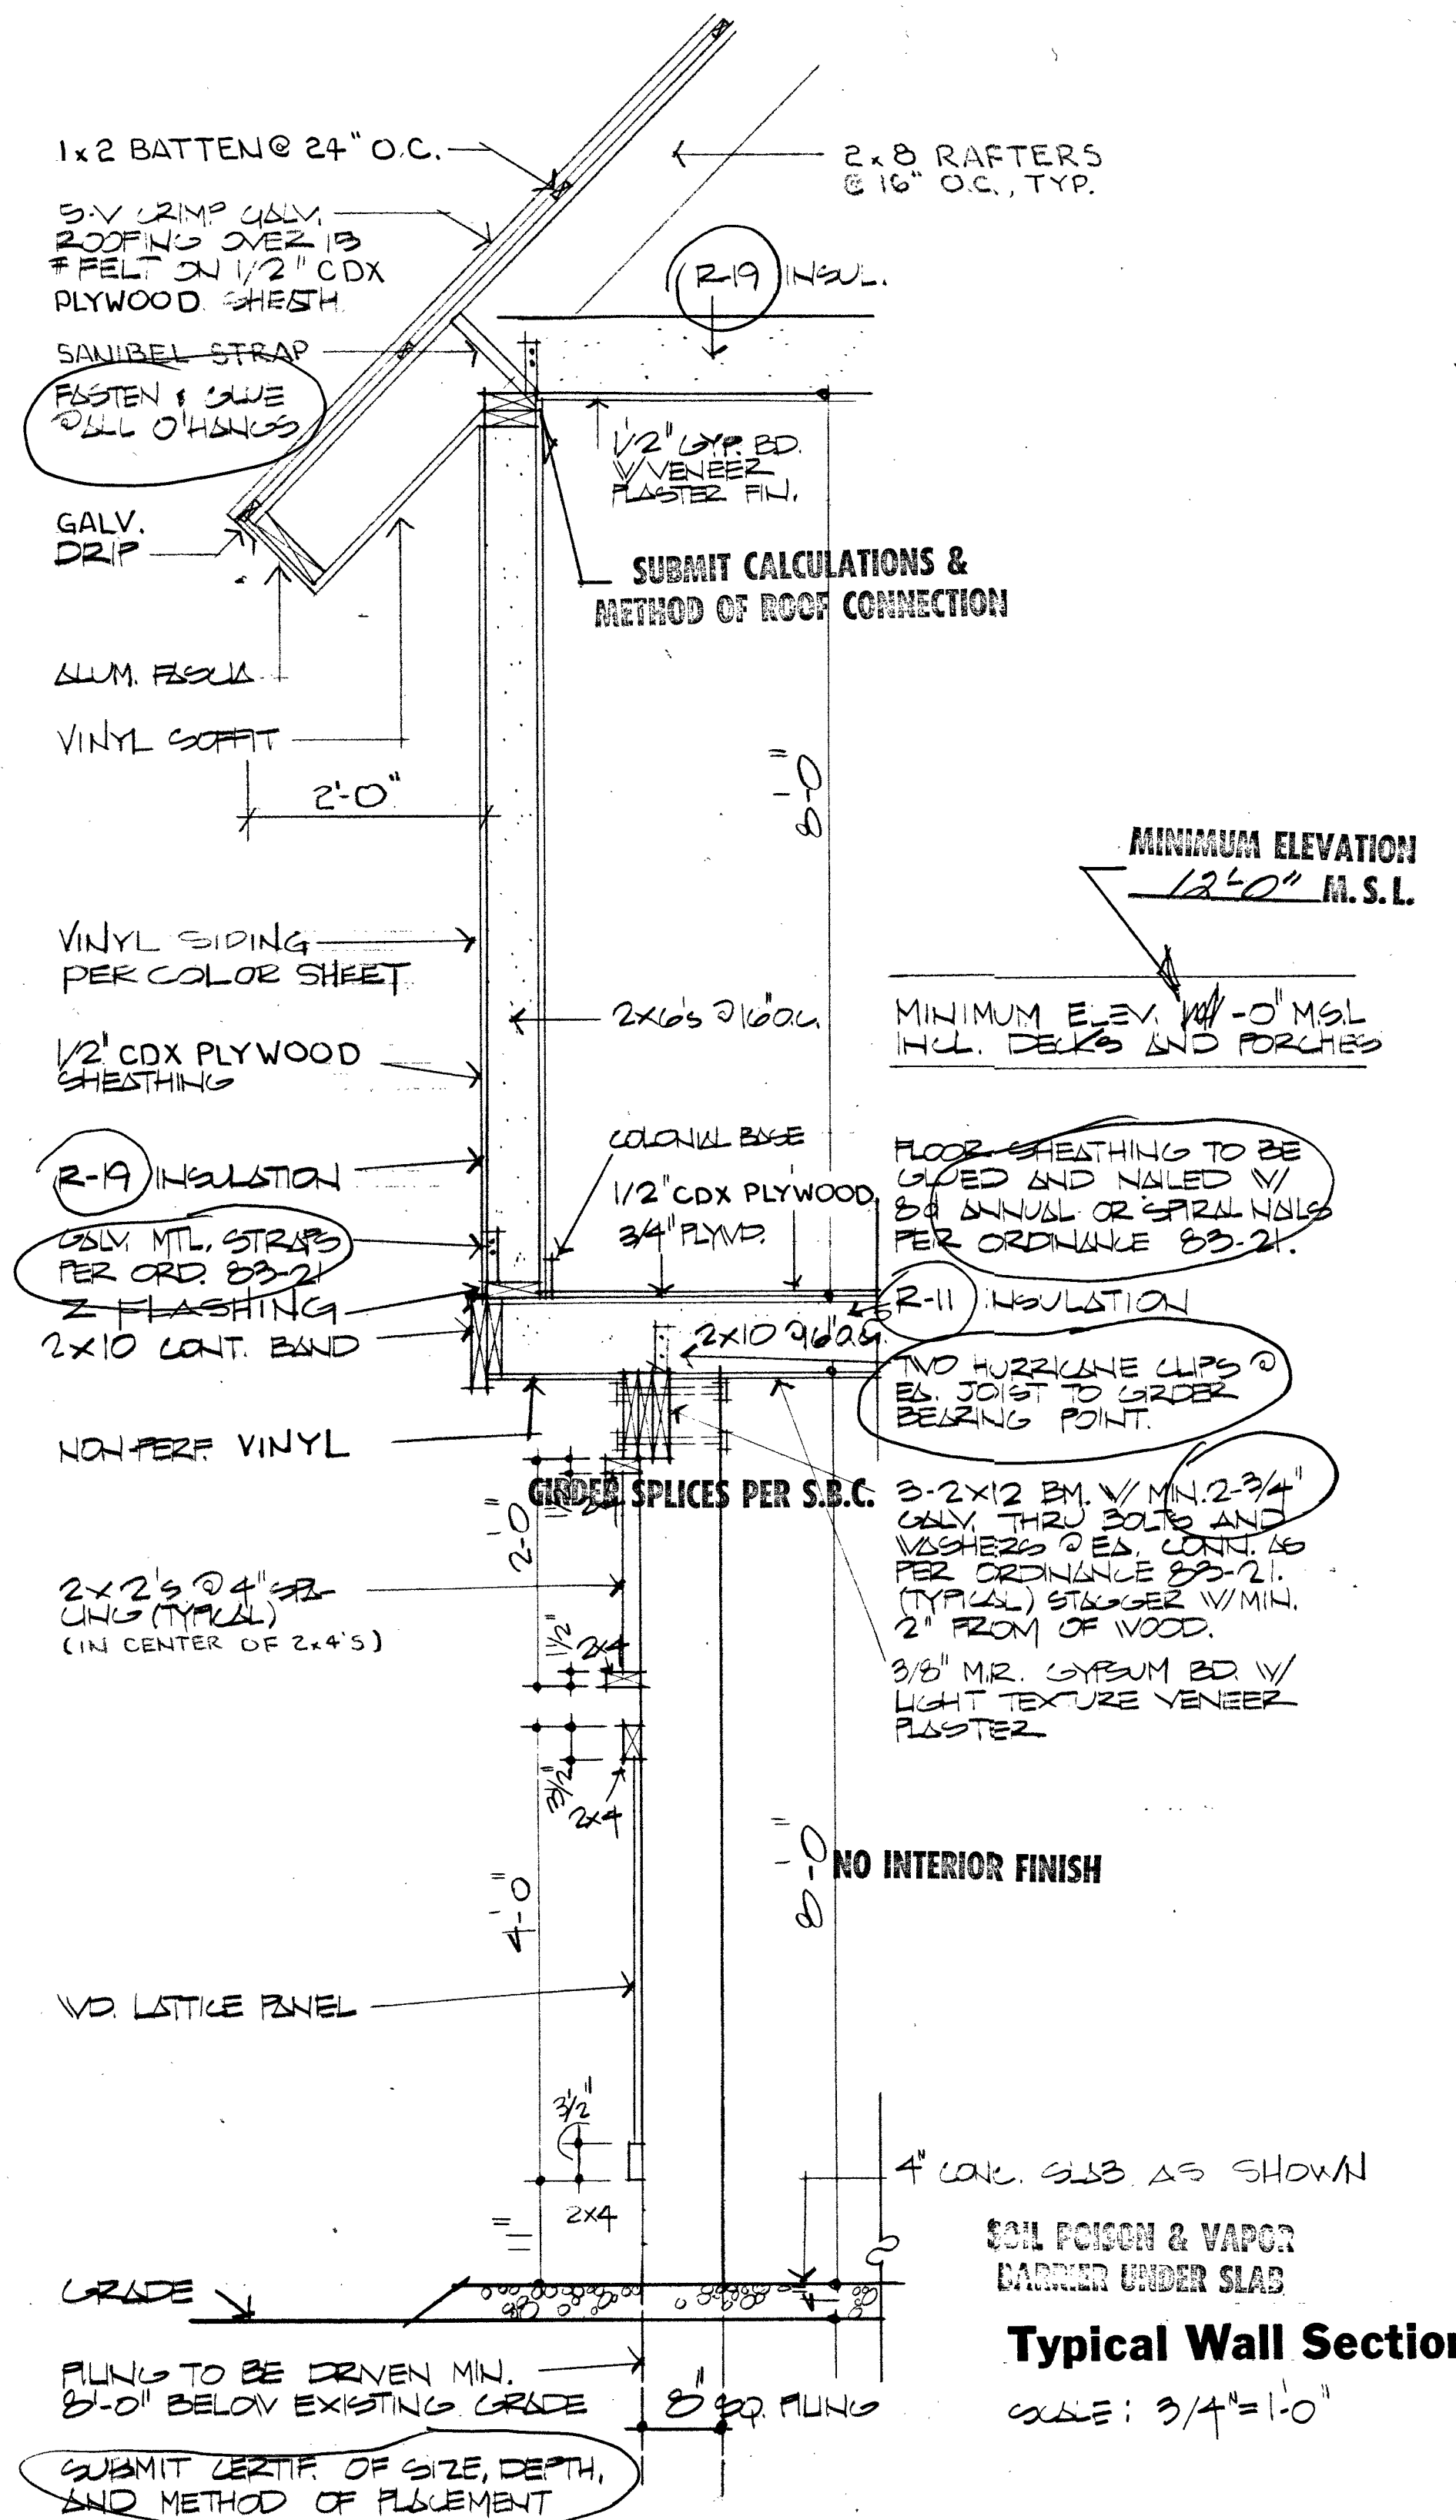 1x2 BATTEN @ 24" O.C.
2x8 RAFTERS
@ 16" O.C., TYP.
5-V CRIMP GALV.
ROOFING OVER 15
# FELT ON 1/2" CDX
PLYWOOD SHEATH
R-19 INSUL.
SANIBEL STRAP
FASTEN & GLUE
@ ALL O'HANGS
1/2" GYP. BD.
W/ VENEER
PLASTER FIN.
GALV.
DRIP
SUBMIT CALCULATIONS &
METHOD OF ROOF CONNECTION
ALUM. FASCIA
VINYL SOFFIT
2'-0"
8'-0"
MINIMUM ELEVATION
12'-0" M.S.L.
VINYL SIDING
PER COLOR SHEET
2x6's @ 16" O.C.
MINIMUM ELEV. -0" M.S.L
INCL. DECKS AND PORCHES
1/2" CDX PLYWOOD
SHEATHING
COLONIAL BASE
1/2" CDX PLYWOOD
3/4" PLYWD.
FLOOR SHEATHING TO BE
GLUED AND NAILED W/
8d ANNUAL OR SPIRAL NAILS
PER ORDINANCE 83-21.
R-19 INSULATION
GALV. MTL. STRAPS
PER ORD. 83-21
Z FLASHING
2x10 CONT. BAND
R-11 INSULATION
2x10 @ 16" O.C.
TWO HURRICANE CLIPS @
EA. JOIST TO GIRDER
BEARING POINT.
NON-PERF. VINYL
GIRDER SPLICES PER S.B.C.
3-2x12 BM. W/ MIN. 2-3/4"
GALV. THRU BOLTS AND
WASHERS @ EA. CONN. AS
PER ORDINANCE 83-21.
(TYPICAL) STAGGER W/ MIN.
2" FROM OF WOOD.
2'-0"
2x2's @ 4" SPA-
CING (TYPICAL)
(IN CENTER OF 2x4's)
1 1/2"
2x4
3/8" M.R. GYPSUM BD. W/
LIGHT TEXTURE VENEER
PLASTER
3 1/2"
2x4
4'-0"
8'-0"
NO INTERIOR FINISH
WD. LATTICE PANEL
3 1/2"
2x4
4" CONC. SLAB AS SHOWN
SOIL POISON & VAPOR
BARRIER UNDER SLAB
GRADE
Typical Wall Section
SCALE: 3/4"=1'-0"
PILING TO BE DRIVEN MIN.
8'-0" BELOW EXISTING GRADE
8" SQ. PILING
SUBMIT CERTIF. OF SIZE, DEPTH,
AND METHOD OF PLACEMENT